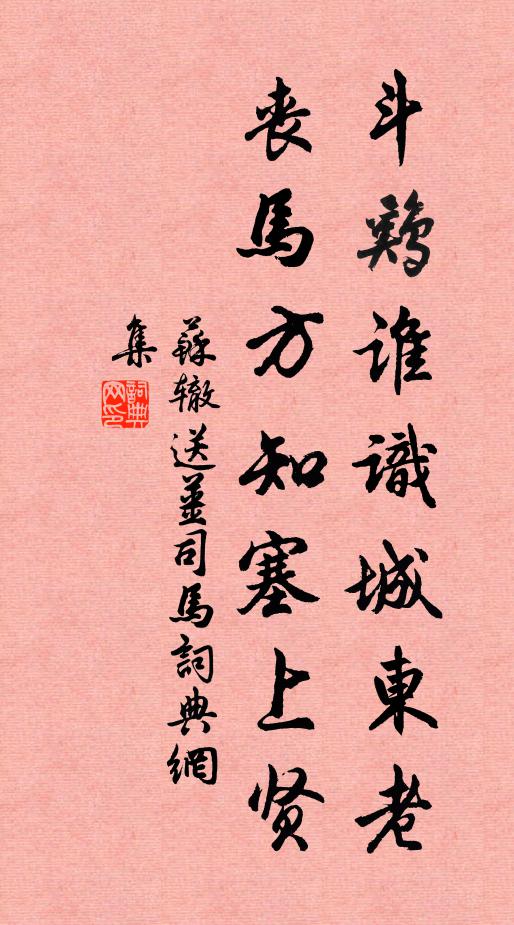 斗鷄誰識城東老
喪馬方知塞上贤
蘇辙送薑司馬詞典網
集
詞典网印